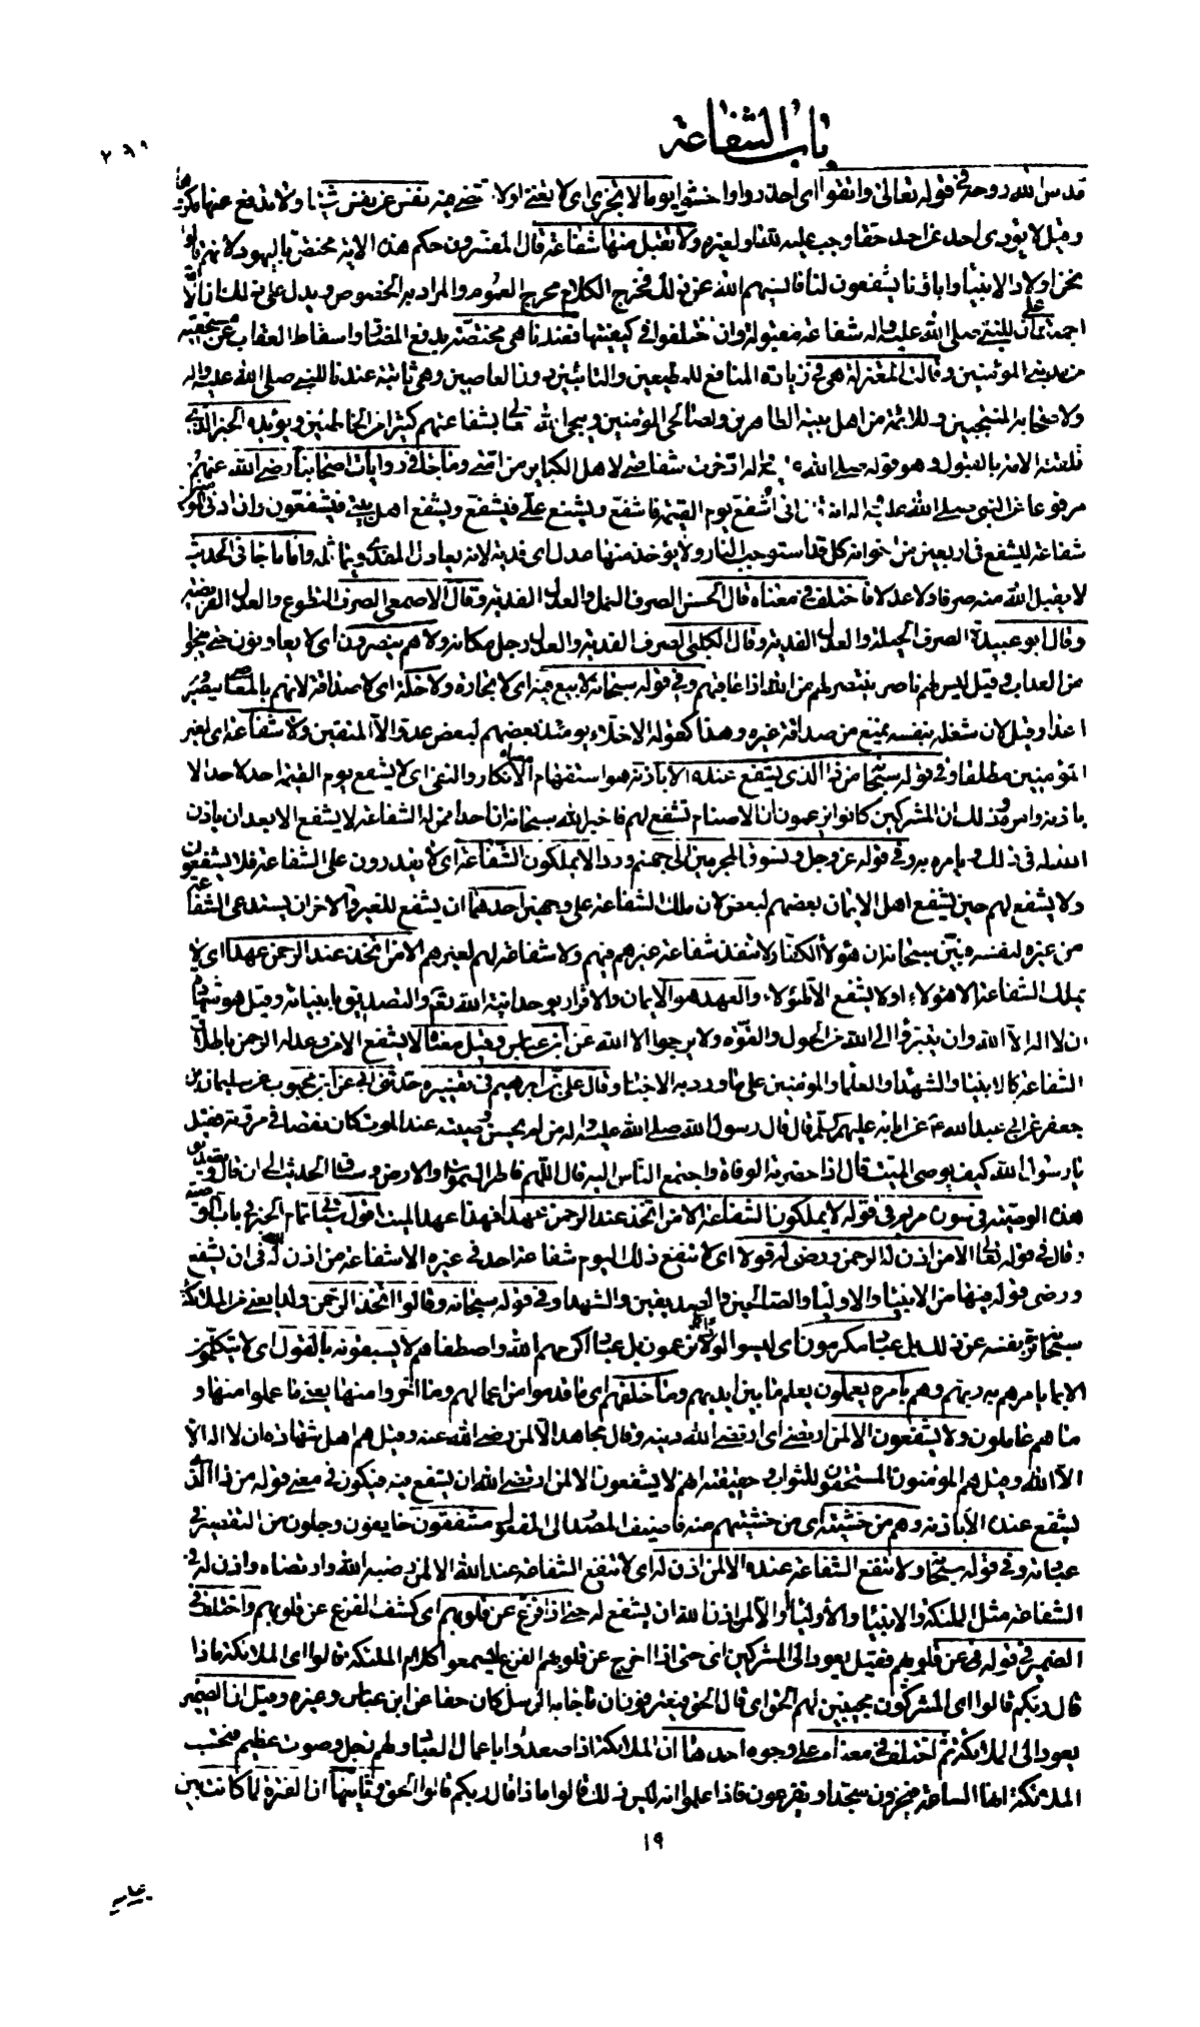 باب الشفاعة
٢٦٩
قدس الله روحه في قوله تعالى واتقوا اى احذروا واخشوا يوما لا تجزى اى لا تغنى او لا تقضى فيه نفس عن نفس شيئا ولا تدفع عنها مكروها
وقيل لا يؤدى احد عن احد حقا وجب عليه لله او لغيره ولا تقبل منها شفاعة قال المفسرون حكم هذه الاية مختص باليهود لانهم قالوا
نحن اولاد الانبياء واباؤنا يشفعون لنا فايسهم الله عن ذلك فخرج الكلام مخرج العموم والمراد به الخصوص ويدل على ذلك ان الامة
اجمعت على ان للنبي صلى الله عليه واله شفاعة مقبولة وان اختلفوا في كيفيتها فعندنا هى مختصة بدفع المضار واسقاط العقاب عن مستحقيه
من مذنبى المؤمنين وقالت المعتزلة هى في زيادة المنافع للمطيعين والتائبين دون العاصين وهى ثابتة عندنا للنبي صلى الله عليه واله
ولاصحابه المنتجبين وللائمة من اهل بيته الطاهرين ولصالحى المؤمنين وينجى الله تعالى بشفاعتهم كثيرا من الخاطئين ويؤيده الخبر الذى
تلقته الامة بالقبول وهو قوله صلى الله عليه واله ادخرت شفاعتى لاهل الكبائر من امتى وما جاء في روايات اصحابنا رضى الله عنهم
مرفوعا عن النبي صلى الله عليه واله انه قال انى اشفع يوم القيمة فاشفع ويشفع على فيشفع ويشفع اهل بيتى فيشفعون وان ادنى المؤمنين
شفاعة ليشفع في اربعين من اخوانه كل قد استوجب النار ولا يؤخذ منها عدل اى فدية لانه يعادل المفدى ويماثله واما ما جاء في الحديث
لا يقبل الله منه صرفا ولا عدلا فاختلف في معناه قال الحسن الصرف العمل والعدل الفدية وقال الاصمعى الصرف التطوع والعدل الفريضة
وقال ابو عبيدة الصرف الحيلة والعدل الفدية وقال الكلبى الصرف الفدية والعدل رجل مكانه ولا هم ينصرون اى لا يعاونون حتى ينجوا
من العذاب وقيل ليس لهم ناصر ينتصر لهم من الله اذا عاقبهم وفي قوله سبحانه لا بيع فيه اى لا تجارة ولا خلة اى لا صداقة لانهم بالمعاصى يصير
اعداء وقيل لان شغله بنفسه يمنع من صداقة غيره وهذا كقوله الاخلاء يومئذ بعضهم لبعض عدو الا المتقين ولا شفاعة اى لغير
المؤمنين مطلقا وفي قوله سبحانه من ذا الذى يشفع عنده الا باذنه هو استفهام معناه الانكار والنفى اى لا يشفع يوم القيمة احد لاحد الا
باذنه وامره وذلك ان المشركين كانوا يزعمون ان الاصنام تشفع لهم فاخبر الله سبحانه ان احدا ممن له الشفاعة لا يشفع الا بعد ان ياذن
الله له في ذلك ويامره به وفي قوله عز وجل ونسوق المجرمين الى جهنم وردا لا يملكون الشفاعة اى لا يقدرون على الشفاعة فلا يشفعون
ولا يشفع لهم حين يشفع اهل الايمان بعضهم لبعض لان ملك الشفاعة على وجهين احدهما ان يشفع للغير والاخر ان يستدعى الشفاعة
من غيره لنفسه فبين سبحانه ان هؤلاء الكفار لا تنفذ شفاعة غيرهم فيهم ولا شفاعة لهم لغيرهم الا من اتخذ عند الرحمن عهدا اى لا
يملك الشفاعة الا هؤلاء او لا يشفع الا لهؤلاء والعهد هو الايمان والاقرار بوحدانية الله تعالى والتصديق بانبيائه وقيل هو شهادة
ان لا اله الا الله وان يتبرأ الى الله من الحول والقوة ولا يرجوا الا الله عن ابن عباس وقيل معناه لا يشفع الا من وعد له الرحمن باطلاق
الشفاعة كالانبياء والشهداء والعلماء والمؤمنين على ما ورد به الاخبار وقال على بن ابرهيم في تفسيره حدثنى ابى عن ابن محبوب عن سليمان بن
جعفر عن ابى عبد الله ع عن ابائه عليهم السلم قال قال رسول الله صلى الله عليه واله من لم يحسن وصيته عند الموت كان نقصا في مروته قيل
يا رسول الله كيف يوصى الميت قال اذا حضرته الوفاة واجتمع الناس اليه قال اللهم فاطر السموات والارض وساق الحديث الى ان قال وتصديق
هذه الوصية في سورة مريم في قوله لا يملكون الشفاعة الا من اتخذ عند الرحمن عهدا فهذا عهد الميت اقول سياتى تمام الخبر في باب الوصية
وقال في قوله تعالى الا من اذن له الرحمن ورضى له قولا اى لا تنفع ذلك اليوم شفاعة احد في غيره الا شفاعة من اذن الله له في ان يشفع
ورضى قوله فيها من الانبياء والاولياء والصالحين والصديقين والشهداء وفي قوله سبحانه وقالوا اتخذ الرحمن ولدا يعنى من الملائكة
سبحانه نزه نفسه عن ذلك بل عباد مكرمون اى ليسوا اولادا كما يزعمون بل عباد اكرمهم الله واصطفاهم لا يسبقونه بالقول اى لا يتكلمون
الا بما يامرهم به ربهم وهم بامره يعملون يعلم ما بين ايديهم وما خلفهم اى ما قدموا من اعمالهم وما اخروا منها يعنى ما عملوا منها و
ما هم عاملون ولا يشفعون الا لمن ارتضى اى ارتضى الله دينه وقال مجاهد الا لمن رضى الله عنه وقيل هم اهل شهادة ان لا اله الا
الا الله وقيل هم المؤمنون المستحقون للثواب وحقيقته انهم لا يشفعون الا لمن ارتضى الله ان يشفع فيه فيكون في معنى قوله من ذا الذى
يشفع عنده الا باذنه وهم من خشيته اى من خشيتهم منه فاضيف المصدر الى المفعول مشفقون خايفون وجلون من التقصير في
عبادته وفي قوله سبحانه ولا تنفع الشفاعة عنده الا لمن اذن له اى لا تنفع الشفاعة عند الله الا لمن رضيه الله وارتضاه واذن له في
الشفاعة مثل الملئكة والانبياء والأولياء أو الا لمن اذن الله ان يشفع له حتى اذا فزع عن قلوبهم اى كشف الفزع عن قلوبهم واختلف في
الضمير في قوله في عن قلوبهم فقيل يعود الى المشركين اى حتى اذا اخرج عن قلوبهم الفزع ليسمعوا كلام الملئكة قالوا اى الملائكة ماذا
قال ربكم قالوا اى المشركون مجيبين لهم الحق اى قال الحق فيعترفون ان ما جاء به الرسل كان حقا عن ابن عباس وغيره وقيل ان الضمير
يعود الى الملائكة ثم اختلف في معناه على وجوه احدها ان الملائكة اذا صعدوا باعمال العباد ولهم زجل وصوت عظيم فتحسب
الملائكة انها الساعة فيخرون سجدا ويفزعون فاذا علموا انه ليس ذلك قالوا ماذا قال ربكم قالوا الحق وثانيها ان الفترة لما كانت بين
١٩